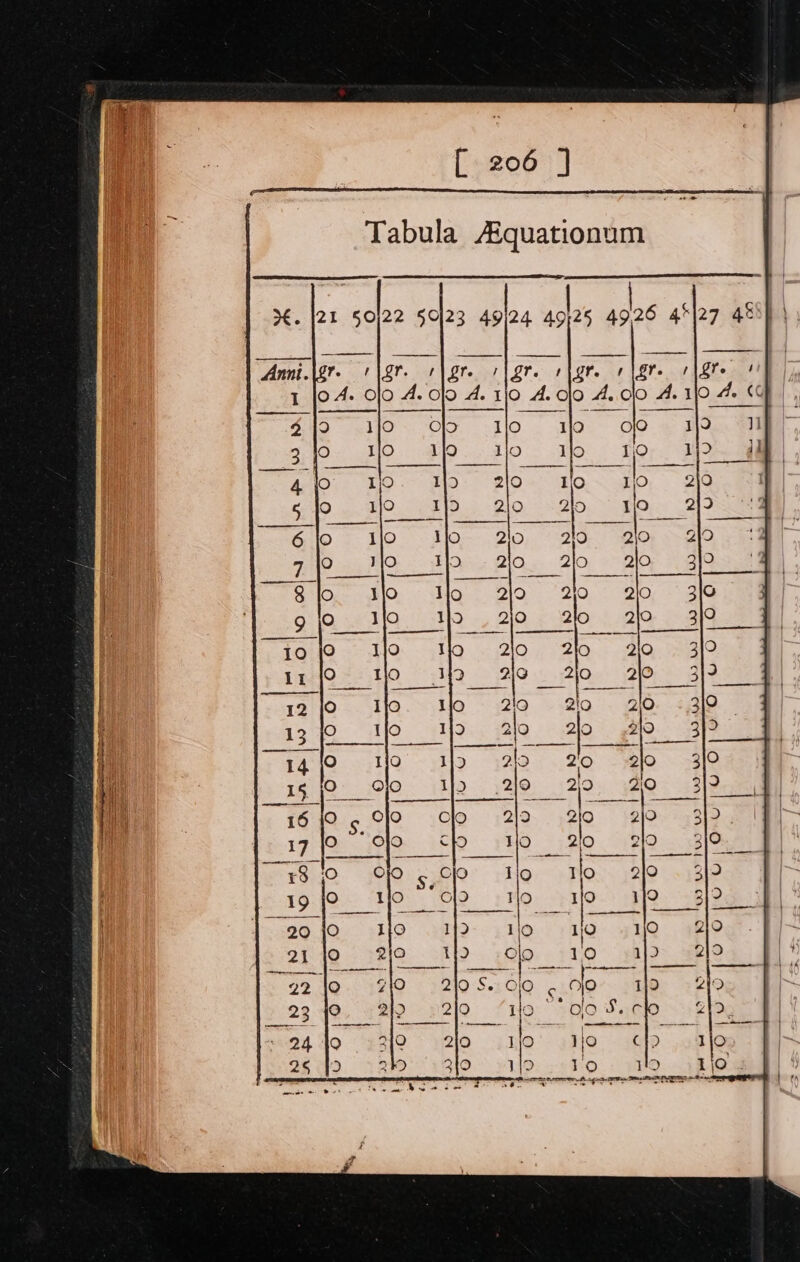 [ 206 ]
Tabula Æquationum
♓. |21 50|22 50|23 49|24 49|25 49|26 48|27 48
Anni.|gr. ′|gr. ′|gr. ′|gr. ′|gr. ′|gr. ′|gr. ′
1 |0 A. 0|0 A. 0|0 A. 1|0 A. 0|0 A. 0|0 A. 1|0 A.
2 |0 1|0 0|0 1|0 1|0 0|0 1|0 1
3 |0 1|0 1|0 1|0 1|0 1|0 1|0
4 |0 1|0 1|0 2|0 1|0 1|0 2|0
5 |0 1|0 1|0 2|0 2|0 1|0 2|0
6 |0 1|0 1|0 2|0 2|0 2|0 2|0
7 |0 1|0 1|0 2|0 2|0 2|0 3|0
8 |0 1|0 1|0 2|0 2|0 2|0 3|0
9 |0 1|0 1|0 2|0 2|0 2|0 3|0
10 |0 1|0 1|0 2|0 2|0 2|0 3|0
11 |0 1|0 1|0 2|0 2|0 2|0 3|0
12 |0 1|0 1|0 2|0 2|0 2|0 3|0
13 |0 1|0 1|0 2|0 2|0 2|0 3|0
14 |0 1|0 1|0 2|0 2|0 2|0 3|0
15 |0 0|0 1|0 2|0 2|0 2|0 3|0
16 |0 S. 0|0 0|0 2|0 2|0 2|0 3|0
17 |0 0|0 0|0 1|0 2|0 2|0 3|0
18 |0 0|0 S. 0|0 1|0 1|0 2|0 3|0
19 |0 1|0 0|0 1|0 1|0 1|0 3|0
20 |0 1|0 1|0 1|0 1|0 1|0 2|0
21 |0 2|0 1|0 0|0 1|0 1|0 2|0
22 |0 2|0 2|0 S. 0|0 S. 0|0 1|0 2|0
23 |0 2|0 2|0 1|0 0|0 S. 0|0 2|0
24 |0 3|0 2|0 1|0 1|0 0|0 1|0
25 |0 3|0 3|0 1|0 1|0 1|0 1|0